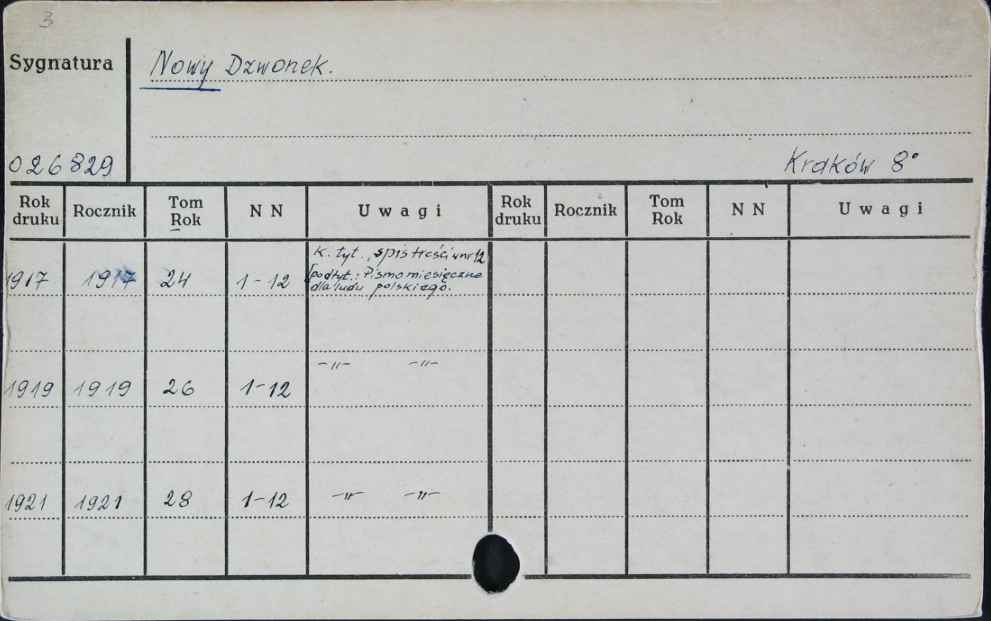 3
Sygnatura
Nowy Dzwonek.
026829
Kraków 8°
Rok druku Rocznik Tom Rok N N Uwagi Rok druku Rocznik Tom Rok N N Uwagi
K. tyt., spis treści w nr 12
1917 1917 24 1-12 [podtyt.: Pismo miesięczne
dla ludu polskiego.
-"- -"-
1919 1919 26 1-12
1921 1921 28 1-12 -"- -"-